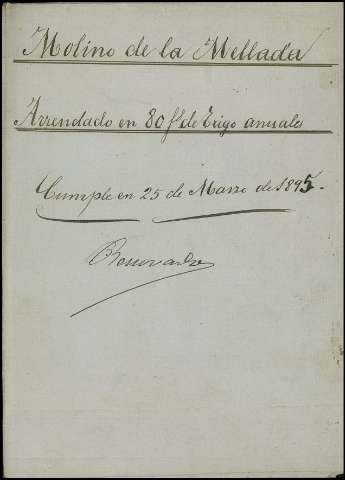 Molino de la Mellada
Arrendado en 80 fs de Trigo anuales
Cumple en 25 de Marzo de 1895.
Reservado